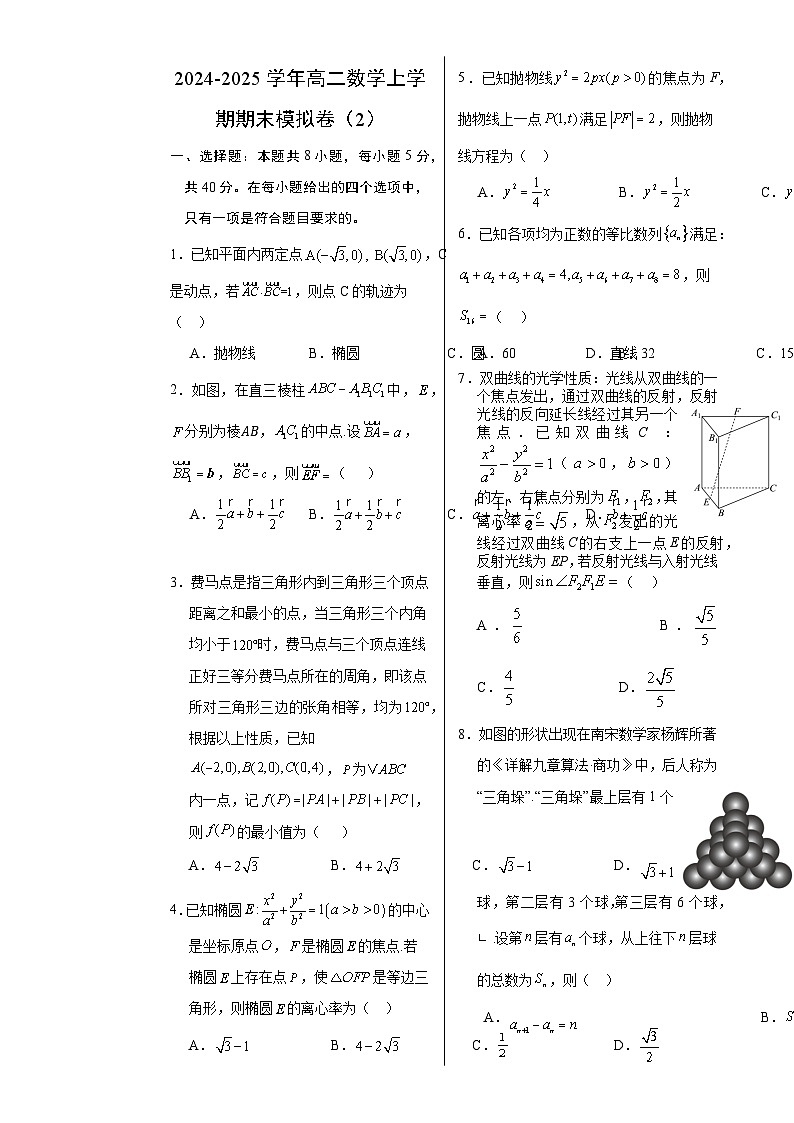 2024-2025 学年高二数学上学
期期末模拟卷（2）
一、选择题：本题共 8 小题，每小题 5 分，
共 40 分。在每小题给出的四个选项中，
只有一项是符合题目要求的。
1.已知平面内两定点 A(−√3,0)，B(√3,0)，C
是动点，若 AC·BC=1，则点 C 的轨迹为
（　）
A．抛物线　B．椭圆　C．圆　D．直线
2．如图，在直三棱柱 ABC − A₁B₁C₁ 中，E，
F 分别为棱 AB，A₁C₁ 的中点.设 BA = a，
BB₁ = b，BC = c，则 EF =（　）
A．1/2 a + b + 1/2 c　B．1/2 a + 1/2 b + c　C．a + 1/2 b + 1/2 c　D．
3．费马点是指三角形内到三角形三个顶点
距离之和最小的点，当三角形三个内角
均小于 120° 时，费马点与三个顶点连线
正好三等分费马点所在的周角，即该点
所对三角形三边的张角相等，均为 120°，
根据以上性质，已知
A(−2,0), B(2,0), C(0,4)，P 为 ∨ABC
内一点，记 f(P) = |PA| + |PB| + |PC|，
则 f(P) 的最小值为（　）
A．4 − 2√3　B．4 + 2√3　C．√3 − 1　D．√3 + 1
4.已知椭圆 E: x²/a² + y²/b² = 1(a > b > 0) 的中心
是坐标原点 O，F 是椭圆 E 的焦点.若
椭圆 E 上存在点 P，使 △OFP 是等边三
角形，则椭圆 E 的离心率为（　）
A．√3 − 1　B．4 − 2√3　C．1/2　D．√3/2
5．已知抛物线 y² = 2px(p > 0) 的焦点为 F，
抛物线上一点 P(1,t) 满足 |PF| = 2，则抛物
线方程为（　）
A．y² = 1/4 x　B．y² = 1/2 x　C．y
6．已知各项均为正数的等比数列 {aₙ} 满足：
a₁ + a₂ + a₃ + a₄ = 4, a₅ + a₆ + a₇ + a₈ = 8，则
S₁₆ =（　）
A．60　32　C．15
7．双曲线的光学性质：光线从双曲线的一
个焦点发出，通过双曲线的反射，反射
光线的反向延长线经过其另一个
焦点．已知双曲线 C ：
x²/a² − y²/b² = 1（a > 0，b > 0）
的左、右焦点分别为 F₁，F₂，其
离心率 e = √5，从 F₂ 发出的光
线经过双曲线 C 的右支上一点 E 的反射，
反射光线为 EP，若反射光线与入射光线
垂直，则 sin∠F₂F₁E =（　）
A．5/6　B．√5/5
C．4/5　D．2√5/5
A₁　F　C₁
B₁
A　C
E　B
8．如图的形状出现在南宋数学家杨辉所著
的《详解九章算法·商功》中，后人称为
“三角垛”.“三角垛”最上层有 1 个
球，第二层有 3 个球,第三层有 6 个球，
∟ .设第 n 层有 aₙ 个球，从上往下 n 层球
的总数为 Sₙ，则（　）
A．aₙ₊₁ − aₙ = n　B．S